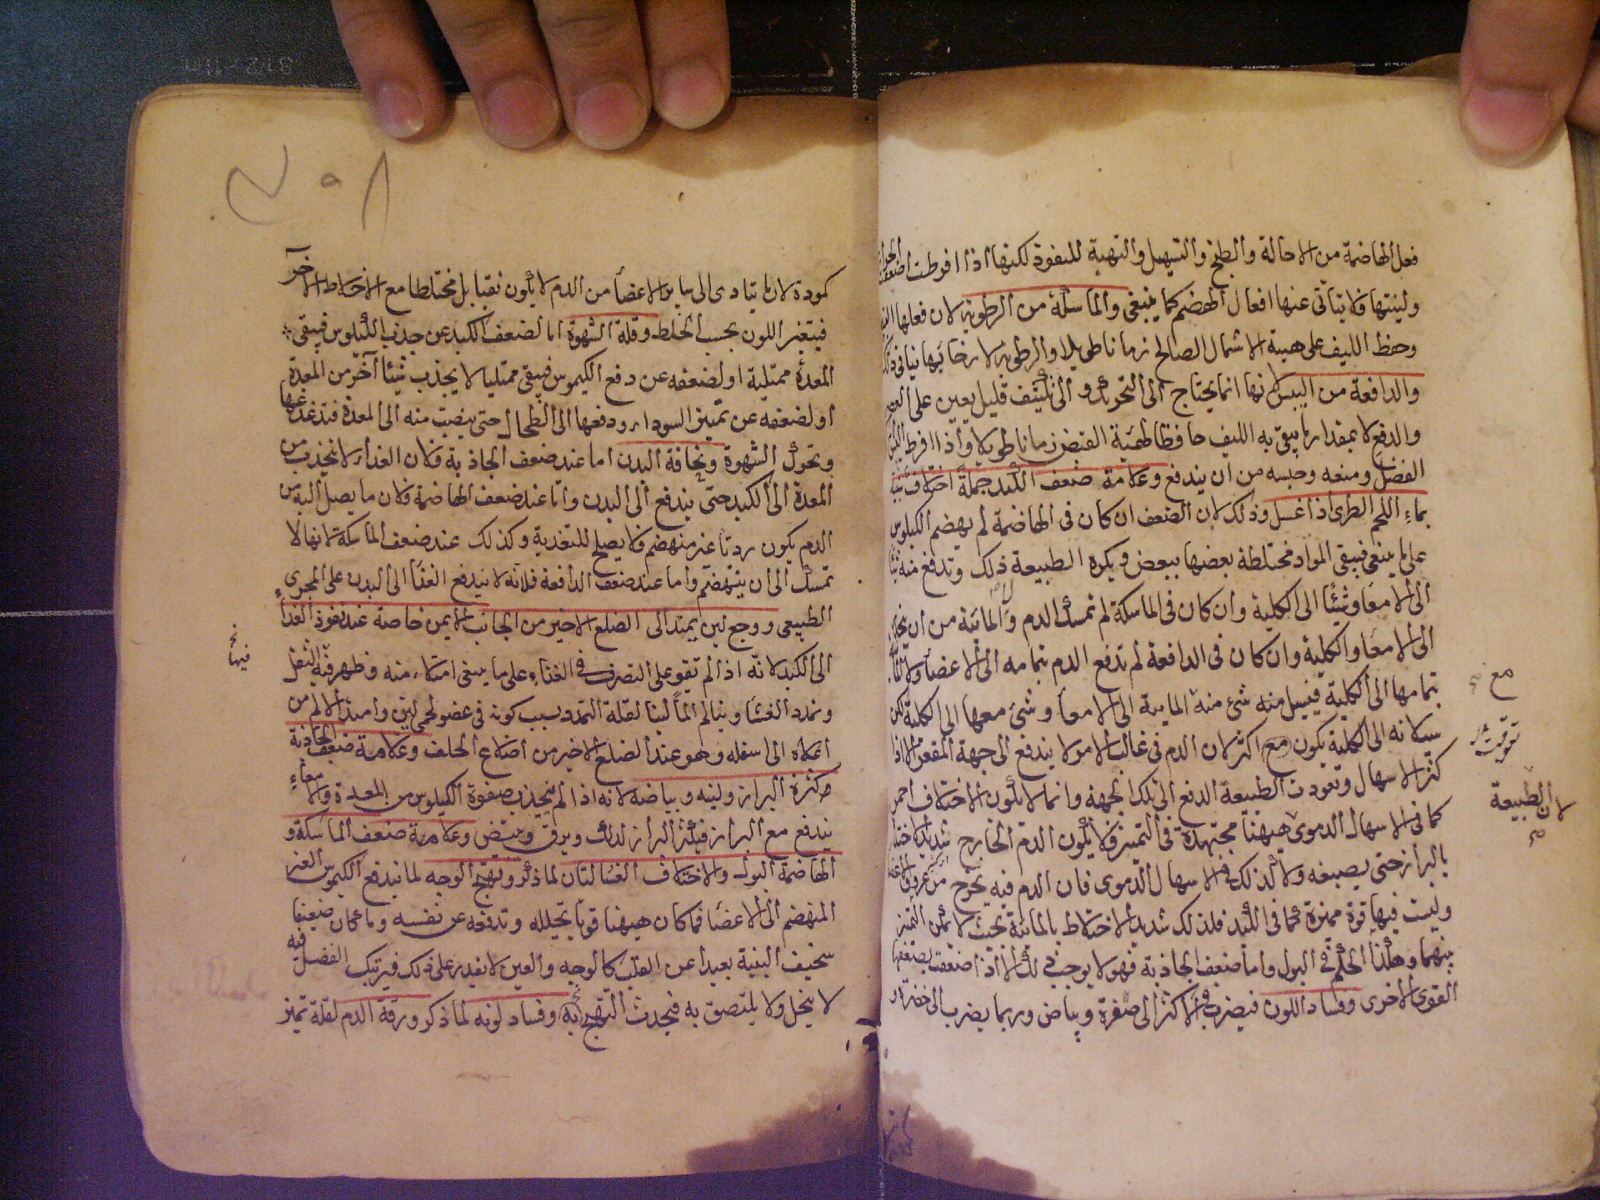 فعل الهاضمة من الاحالة والطبخ والتسهيل والتهية للنفوذ لكنها اذا افرطت اضعفت الحرارة
ولينتها فلا يتأتى عنها افعال الهضم كما ينبغى والماسكة من الرطوبة لان فعلها
وحفظ الليف على هيئة الاشتمال الصالح زمانا طويلا والرطوبة لارخائها
والدافعة من اليبس لانها انما يحتاج الى التحريك والى تكثيف قليل يعين على العصر
والدفع لا بمقدار ما يبقى به الليف حافظا لهيئة القبض زمانا طويلا واذا افرط اليبس
الفضل ومنعه وحبسه من ان يندفع وعلامة ضعف الكبد جملة اختلاف شبيه
بماء اللحم الطرى اذا غسل وذلك لان الضعف ان كان فى الهاضمة لم يهضم الكيلوس
على ما ينبغى فيبقى المواد مختلطة بعضها ببعض ويكره الطبيعة ذلك وتدفع منه شيئا
الى الامعا وشيئا الى الكلية وان كان فى الماسكة لم تمسك الدم والمائية من ان
الى الامعا والكلية وان كان فى الدافعة لم تدفع الدم بتمامه الى الاعضا ولا المائية
بتمامها الى الكلية فيسيل منه شئ منه المائية الى الامعا وشئ معها الى الكلية لكن
سيلانه الى الكلية يكون مع اكثر لان الدم فى غالب الامر لا يندفع الى جهة المقعر الا اذا
كثر الاسهال وتعودت الطبيعة الدفع الى تلك الجهة وانما لا يكون الاختلاف احمر
كما فى الاسهال الدموى هيهنا مجتهدة فى التميز فلا يكون الدم الخارج شديد الاختلاط
بالبراز حتى يصبغه ولا كذلك فى الاسهال الدموى فان الدم فيه يخرج من عروق الامعا
وليست فيها قوة مميزة كما فى الكبد فلذلك شديد الاختلاط بالمائية بحيث لا يمكن التميز
بينهما وهكذا الحكم فى البول واما ضعف الجاذبة فهو لا يوجب ذلك الا اذا اضعفت بضعفها
القوى الاخرى وفساد اللون فيضرب فى الاكثر الى صفرة وبياض وربما يضرب الى خضرة و
مع
تعوقت
لان الطبيعة
كمودة لان ما يتادى الى ساير الاعضا من الدم لا يكون نقيا بل مختلطا مع الاخلاط الاخر
فيتغير اللون بحسب الخلط وقلة الشهوة اما لضعف الكبد عن جذب الكيلوس فيبقى
المعدة ممتلية او لضعفه عن دفع الكيموس فيبقى ممتليا لا يجذب شيئا آخر من المعدة
او لضعفه عن تميز السوداء ودفعها الى الطحال حتى ينصب منه الى المعدة فتدغدغها
وتحرك الشهوة ونحافة البدن اما عند ضعف الجاذبة فلان الغذاء لا ينجذب من
المعدة الى الكبد حتى يندفع الى البدن واما عند ضعف الهاضمة فلان ما يصل اليه من
الدم يكون رديا غير منهضم فلا يصلح للتغذية وكذلك عند ضعف الماسكة لانها لا
تمسك الى ان ينهضم واما عند ضعف الدافعة فلانه لا يندفع الغذا الى البدن على المجرى
الطبيعى ووجع لين يمتد الى الضلع الاخير من الجانب الايمن خاصة عند نفوذ الغذا
الى الكبد لانه اذا لم تقو على التصرف فى الغذاء على ما ينبغى امتلاء منه وظهر فيه الثقل
وتمدد الغشا وينالم الما لينا لقلة التمدد بسبب كونه فى عضو لحمى لين وامتداد الالم من
اعلاه الى اسفله وهو عند الضلع الاخير من اضلاع الخلف وعلامة ضعف الجاذبة
كثرة البراز ولينه وبياضه لانه اذا لم ينجذب صفوة الكيلوس من المعدة والامعاء
يندفع مع البراز فيكثر البراز لذلك ويرق ويبيض وعلامة ضعف الماسكة و
الهاضمة البول والاختلاف الغساليان لما ذكر وتهيج الوجه لما يندفع الكيموس الغير
المنهضم الى الاعضا فما كان هيهنا قويا يحلله وتدفعه عن نفسه وما كان ضعيفا
سخيف البنية بعيدا عن القلب كالوجه والعين لا يقدر على ذلك فيرتبك الفضل فيه
لا يتحلل ولا يلتصق به فيحدث التهيج فيه وفساد لونه لما ذكر ورقة الدم لقلة تميز
فيها